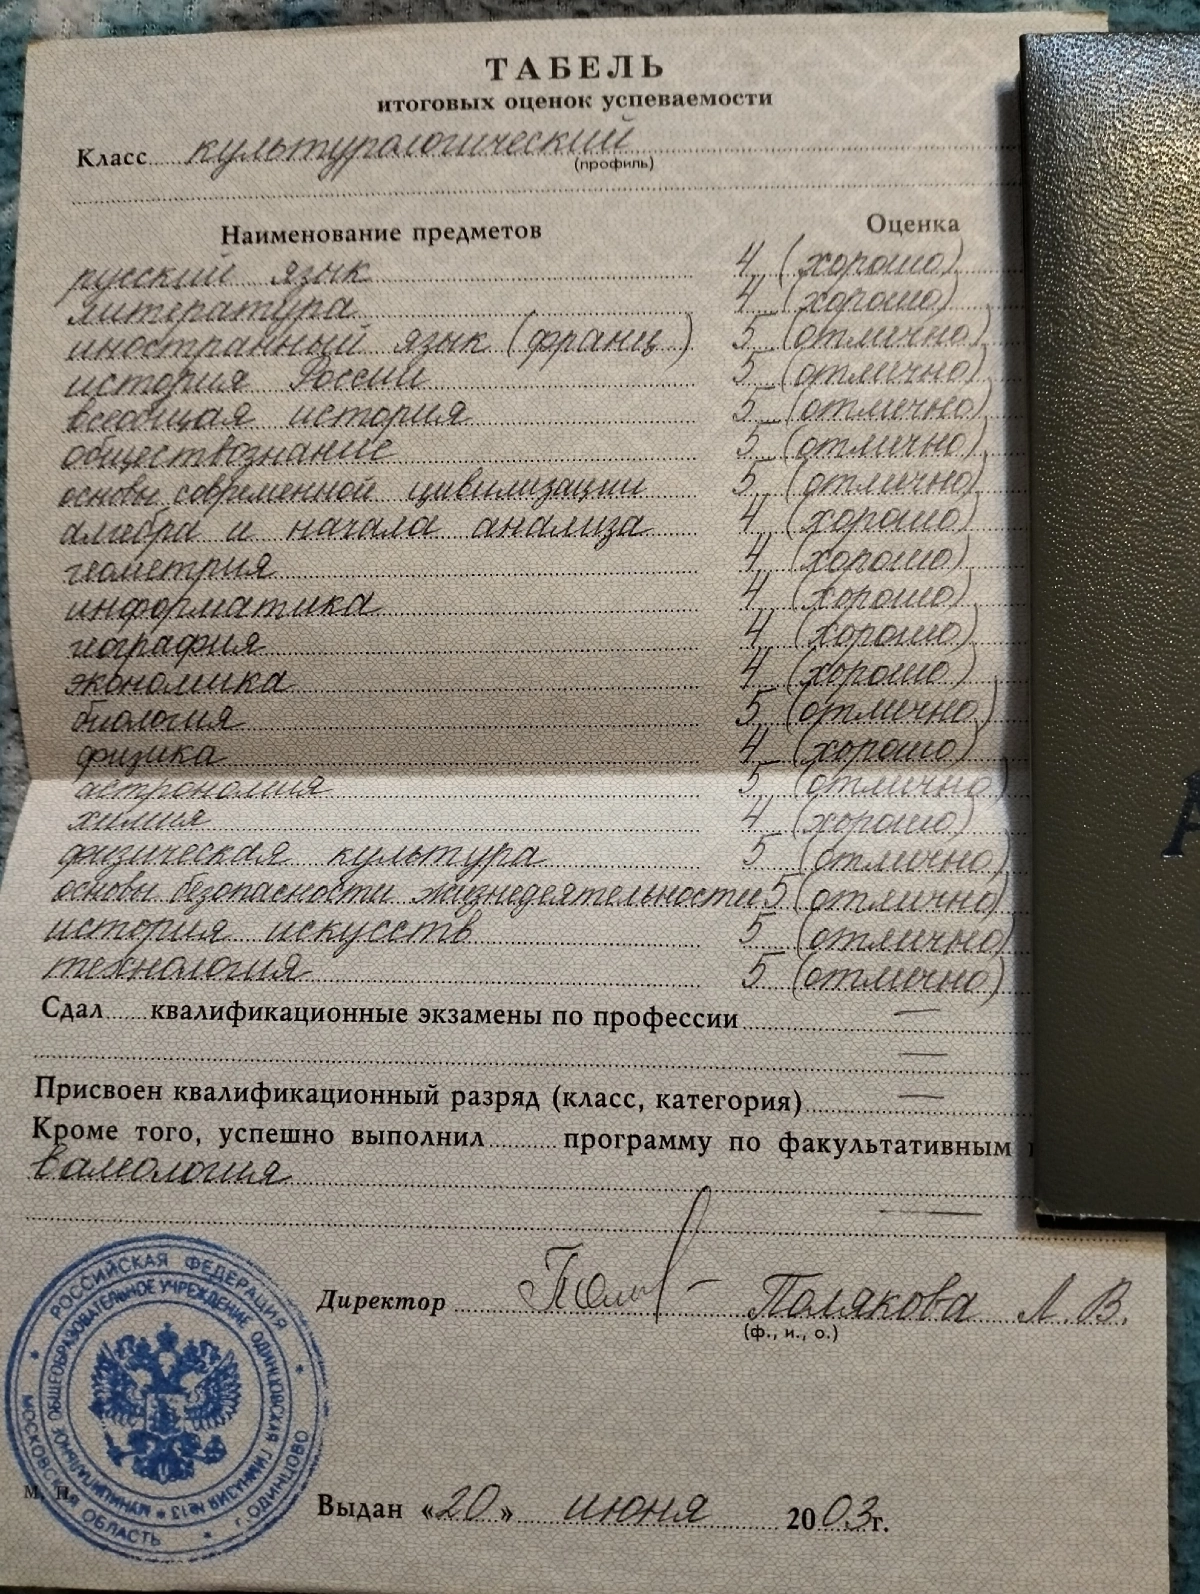 ТАБЕЛЬ
итоговых оценок успеваемости
Класс культурологический
(профиль)
Наименование предметов Оценка
русский язык 4 (хорошо)
литература 4 (хорошо)
иностранный язык (франц) 5 (отлично)
история России 5 (отлично)
всеобщая история 5 (отлично)
обществознание 5 (отлично)
основы современной цивилизации 5 (отлично)
алгебра и начала анализа 4 (хорошо)
геометрия 4 (хорошо)
информатика 4 (хорошо)
география 4 (хорошо)
экономика 4 (хорошо)
биология 5 (отлично)
физика 4 (хорошо)
астрономия 5 (отлично)
химия 4 (хорошо)
физическая культура 5 (отлично)
основы безопасности жизнедеятельности 5 (отлично)
история искусств 5 (отлично)
технология 5 (отлично)
Сдал квалификационные экзамены по профессии —
—
Присвоен квалификационный разряд (класс, категория) —
Кроме того, успешно выполнил программу по факультативным
валеология
—
Директор Полякова Л. В.
(ф., и., о.)
РОССИЙСКАЯ ФЕДЕРАЦИЯ * г. ОДИНЦОВО * МОСКОВСКАЯ ОБЛАСТЬ *
МУНИЦИПАЛЬНОЕ ОБЩЕОБРАЗОВАТЕЛЬНОЕ УЧРЕЖДЕНИЕ ОДИНЦОВСКАЯ ГИМНАЗИЯ №13 *
М. П.
Выдан «20» июня 2003г.